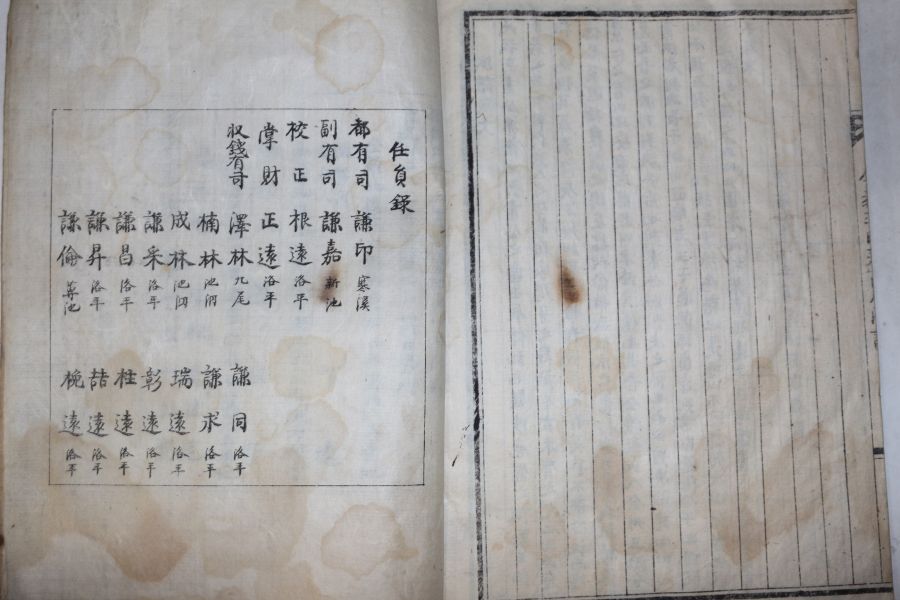 任員錄
都有司 謙印 寒溪
副有司 謙嘉 新池
校正 根遠 洛平
掌財 正遠 洛平
收錢有司 澤林 九尾 謙同 洛平
楠林 池洞 謙求 洛平
成林 池洞 瑞遠 洛平
謙采 洛平 彰遠 洛平
謙昌 洛平 柱遠 洛平
謙昇 洛平 喆遠 洛平
謙倫 池 梚遠 洛平